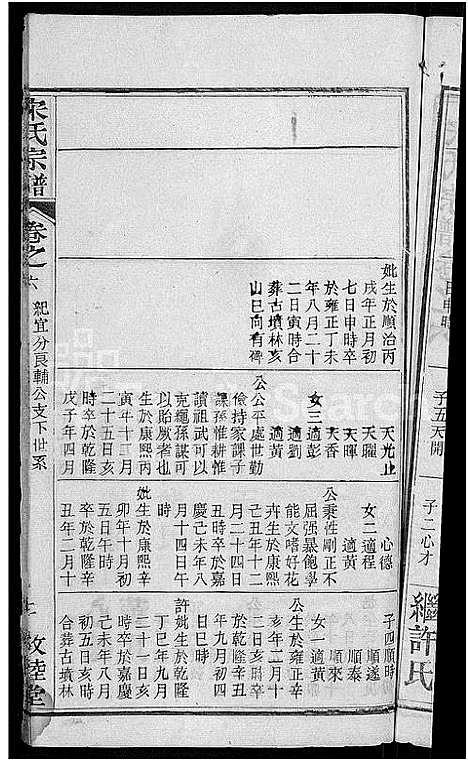 子五天開
子二心才
繼許氏
妣生於順治丙
戌年正月初
七日申時卒
於雍正丁未
年八月二十
二日寅時合
葬古墳林亥
山巳向有碑
天光止
天曜
天暉
天香
女三適彭
適劉
適黃
公公平處世勤
儉持家課子
課孫惟耕惟
讀祖武可以
克繩孫謀可
以貽厥者也
生於康熙丙
寅年十二月
二十五日亥
時卒於乾隆
戊子年四月
心德
女二適程
適黃
公秉性剛正不
屈强暴飽學
能文嗜好花
卉生於康熙
己丑年十二
月二十四日
丑時卒於嘉
慶己未年八
月十四日午
時
妣生於康熙辛
卯年十月初
五日午時
卒於乾隆辛
丑年二月十
子四順時
順遂
順泰
順來
女一適黃
公生於雍正辛
亥年二月十
二日亥時卒
於乾隆辛丑
年九月初四
日巳時
許妣生於乾隆
丁巳年九月
二十一日亥
時卒於嘉慶
己未年八月
初五日亥時
合葬古墳林
宋氏宗譜
卷之六
紀宜分良輔公支下世系
敦睦堂